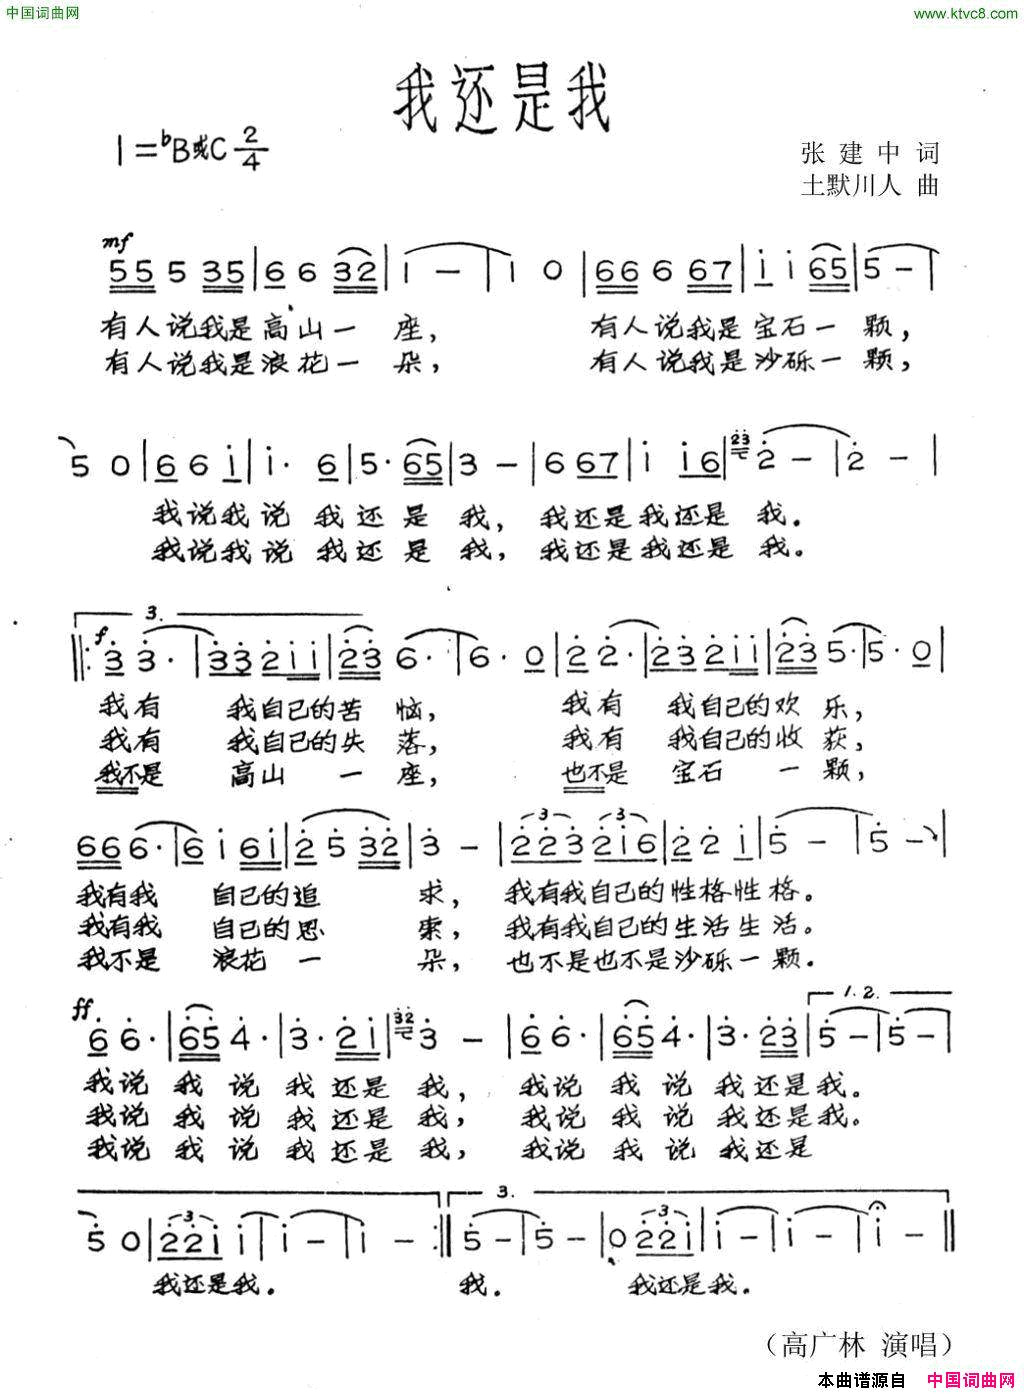 中国词曲网 www.ktvc8.com
我还是我
1=♭B或C 2/4
张建中 词
土默川人 曲
mf
55 5 35 | 6 6 32 | i – | i 0 | 66 6 67 | i i 65 | 5 – |
有人说我是高山一座, 有人说我是宝石一颗,
有人说我是浪花一朵, 有人说我是沙砾一颗,
5 0 | 6 6 i | i· 6 | 5· 65 | 3 – | 6 67 | i i6 | 23 2 – | 2 – |
我说我说 我还是我, 我还是我还是我.
我说我说 我还是我, 我还是我还是我.
3.
f
‖: 3 3· | 33 2ii | 23 6· | 6· 0 | 2 2· | 23 2ii | 23 5· | 5· 0 |
我有 我自己的苦恼, 我有 我自己的欢乐,
我有 我自己的失落, 我有 我自己的收获,
我不是 高山一座, 也不是 宝石一颗,
666· | 6 i 6i | 2 5 32 | 3 – | 223 2i6 | 2 2 i | 5 – | 5 – |
我有我 自己的追求, 我有我自己的性格性格。
我有我 自己的思索, 我有我自己的生活生活。
我不是 浪花一朵, 也不是也不是沙砾一颗.
ff 1. 2.
6 6· | 65 4· | 3· 2i | 32 3 – | 6 6· | 65 4· | 3· 23 | 5 – | 5 – |
我说我说我还是我, 我说我说我还是我。
我说我说我还是我, 我说我说我还是我。
我说我说我还是我, 我说我说我还是
3.
5 0 | 22i i | i – | i – :‖ 5 – | 5 – | 0 22i | i – | i – | i – ‖
我还是我. 我. 我还是我.
（高广林 演唱）
本曲谱源自 中国词曲网